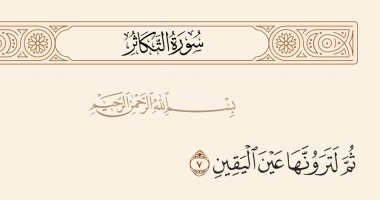 سُورَةُ التَّكَاثُرِ
بِسْمِ اللَّهِ الرَّحْمَٰنِ الرَّحِيمِ
ثُمَّ لَتَرَوُنَّهَا عَيْنَ الْيَقِينِ ٧